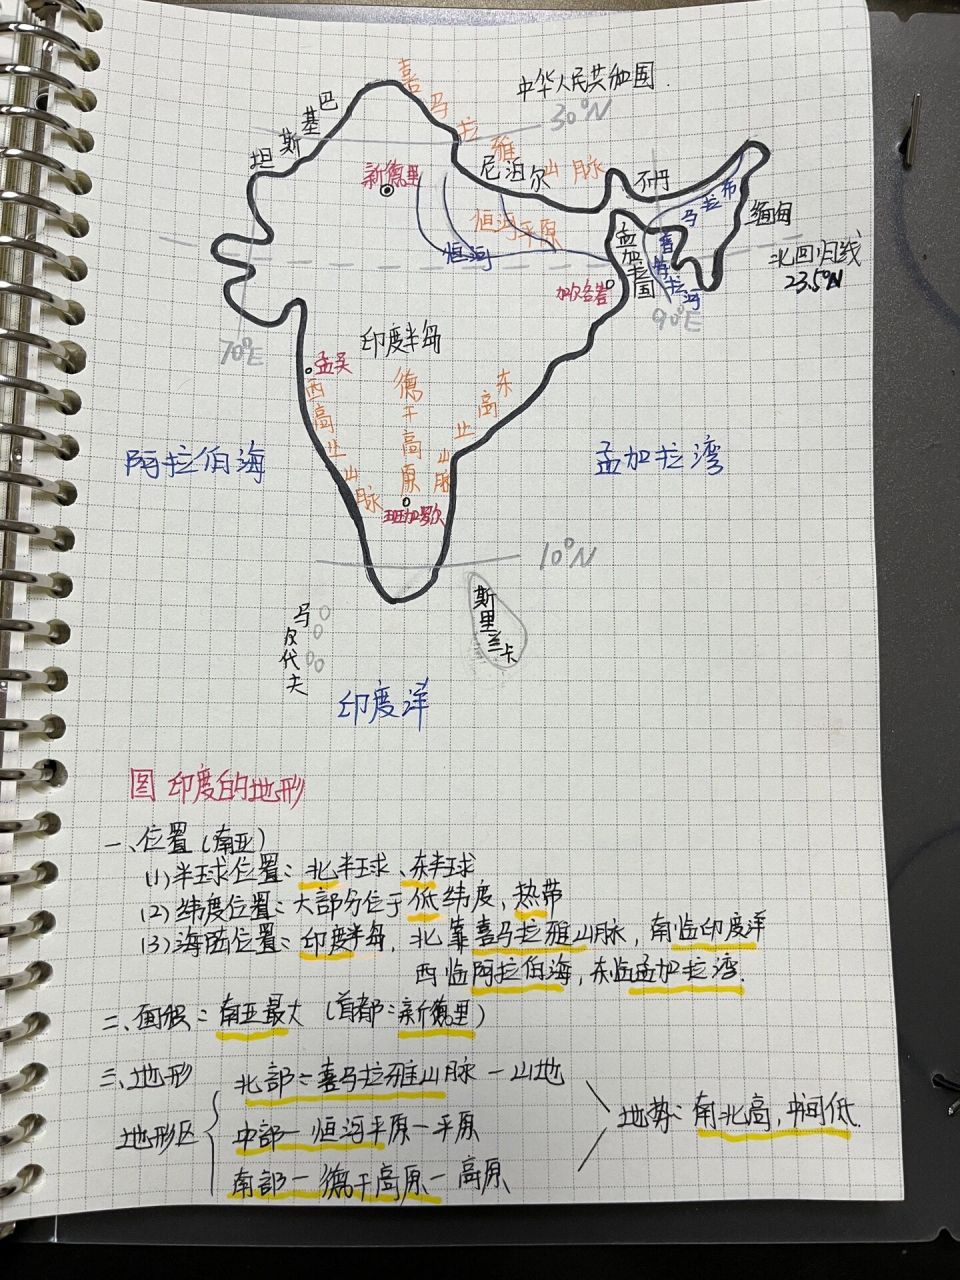 中华人民共和国
喜马拉雅山脉
30°N
巴基斯坦
尼泊尔
不丹
新德里
恒河平原
恒河
布拉马普特拉河
缅甸
孟加拉国
北回归线
23.5°N
加尔各答
90°E
70°E
印度半岛
孟买
西高止山脉
德干高原
东高止山脉
阿拉伯海
孟加拉湾
班加罗尔
10°N
马尔代夫
斯里兰卡
印度洋
图 印度的地形
一、位置(南亚)
(1)半球位置:北半球、东半球
(2)纬度位置:大部分位于低纬度,热带
(3)海陆位置:印度半岛,北靠喜马拉雅山脉,南临印度洋
西临阿拉伯海,东临孟加拉湾.
二、面积:南亚最大(首都:新德里)
三、地形
地形区
北部:喜马拉雅山脉-山地
中部-恒河平原-平原
南部-德干高原-高原
地势:南北高,中间低.